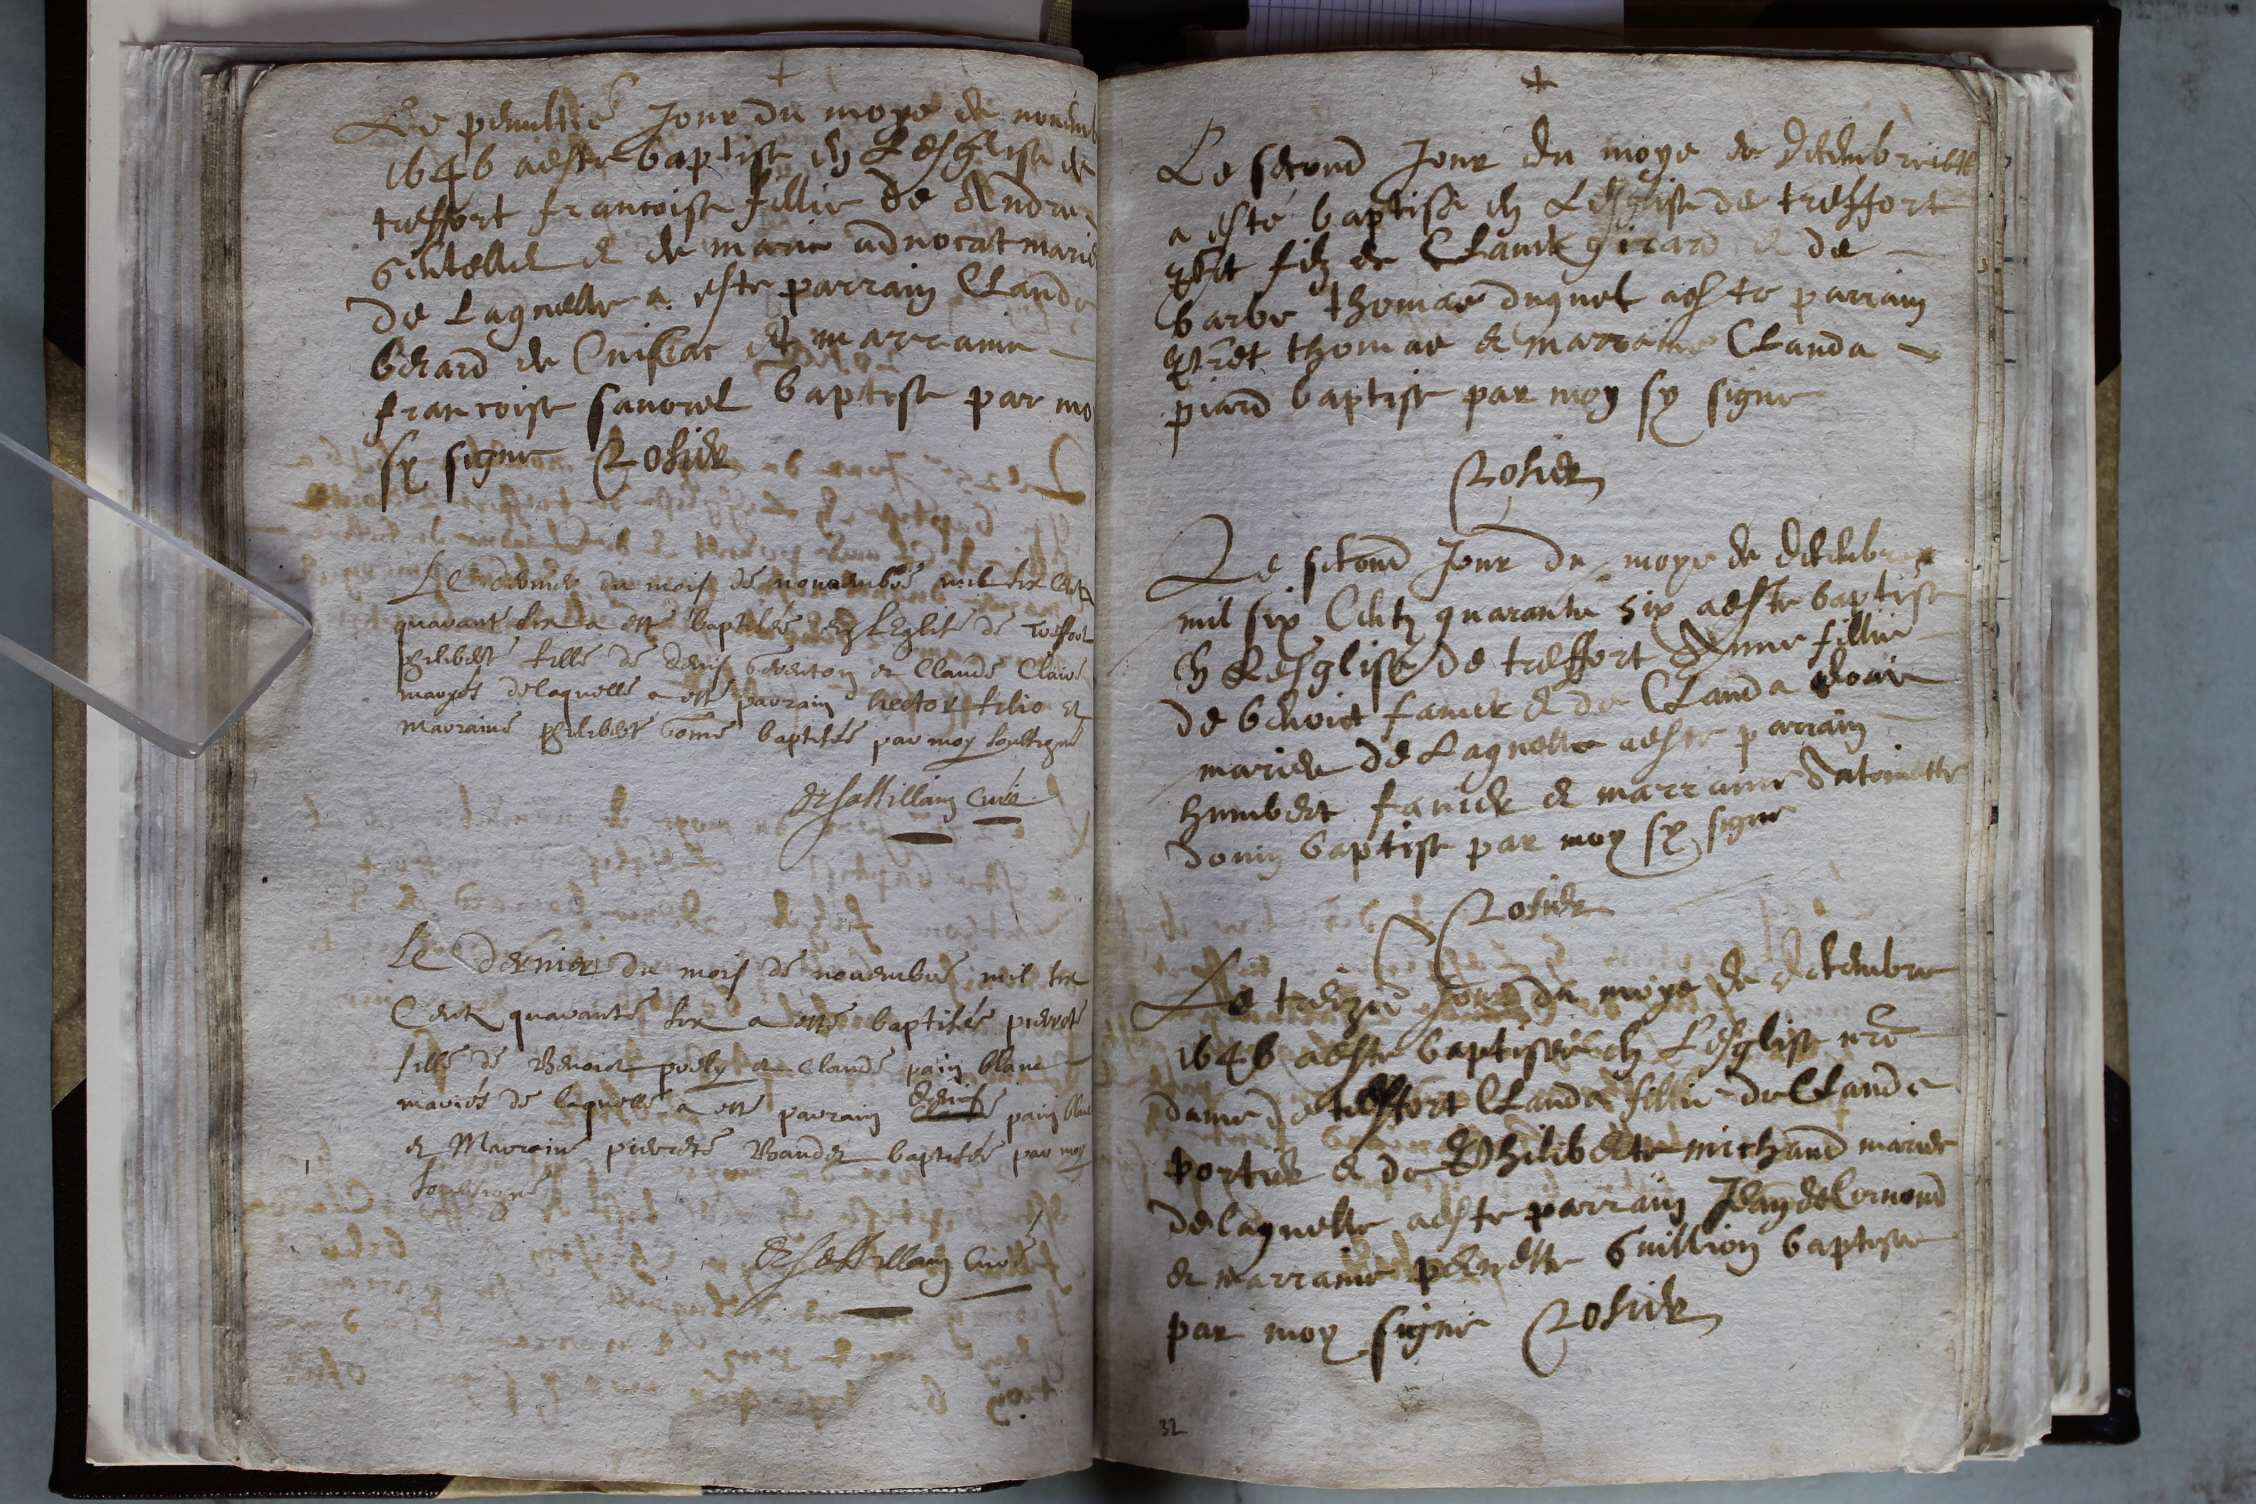 Le penultie Jour du moys de novemb
1646 a este baptise en Lesglise de
treffort francoise fillie de Andre
de marie advocat marie
de Laquelle a este parrain Claude
berard de Cuisiat et marraine
francoise savorel baptise par mo
sy signe Rosier
Le dernier du mois de novembre mil six cent
quarant six a este baptisée en lEglise de Treffort
philiberte fille de denis berenton et Claude Claire
maryés de laquelle a esté parrain hector et
Marraine philiberte baptisée par moy soubsigné
curé
Le dernier du mois de novembre mil six
Centz quarante six a esté baptisée pierrete
fille de Benoict poëly et Claude pain blanc
mariés de laquelle a esté parrain denis pain blanc
et Marraine pierrete baptisée par moy
soubsigné
curé
Le second Jour du moys de Decembre
a este baptise en Lesglise de treffort
filz de Claude girard et de
barbe thomas duquel a este parrain
thomas et marraine Clauda
piard baptise par moy sy signe
Rosier
Le second Jour du moys de Decembre
mil six Centz quarante six a este baptise
en Lesglise de treffort Anne fillie
de benoict favier et de Clauda
maries de Laquelle a este parrain
humbert favier et marraine Antoinette
baptise par moy sy signe
Rosier
Le Jour du moys de Decembre
1646 a este baptisée en Lesglise nre
dame de treffort Clauda fillie de Claude
portier et de Philiberte michaud maries
de laquelle a este parrain Jean de Cornoud
et marraine pernette Guillion baptisee
par moy signe Rosier
32